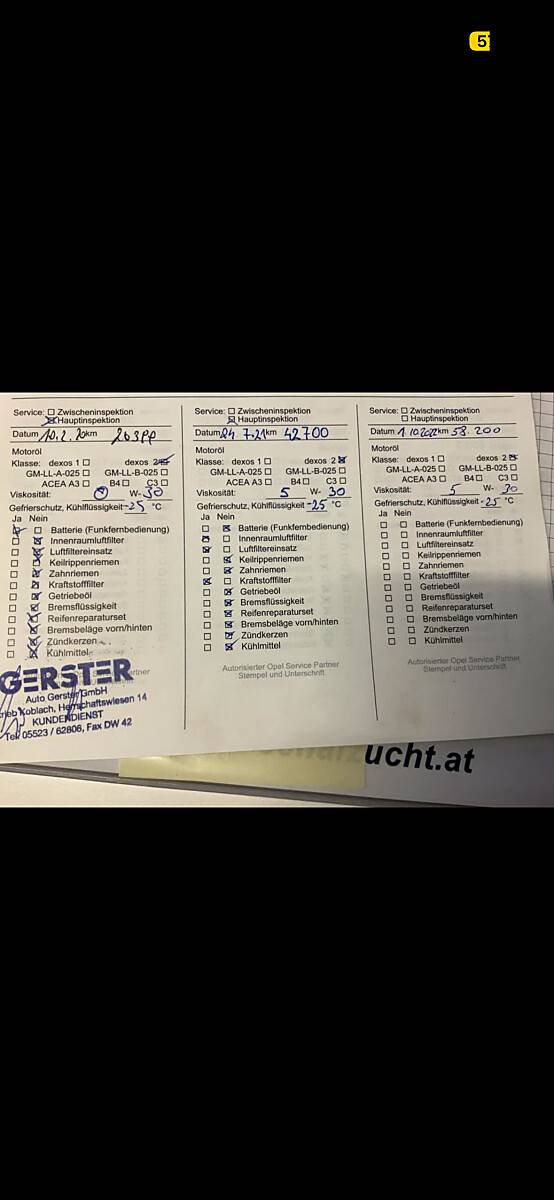 5
Service: Zwischeninspektion
Hauptinspektion
Datum 10.2.20 km
Motoröl
Klasse: dexos 1 dexos 2
GM-LL-A-025 GM-LL-B-025
ACEA A3 B4 C3
Viskosität: W- 30
Gefrierschutz, Kühlflüssigkeit -25 °C
Ja Nein
Batterie (Funkfernbedienung)
Innenraumluftfilter
Luftfiltereinsatz
Keilrippenriemen
Zahnriemen
Kraftstofffilter
Getriebeöl
Bremsflüssigkeit
Reifenreparaturset
Bremsbeläge vorn/hinten
Zündkerzen
Kühlmittel
Partner
GERSTER
Auto Gerster GmbH
Koblach, Herrschaftswiesen 14
KUNDENDIENST
Tel 05523 / 62806, Fax DW 42
Service: Zwischeninspektion
Hauptinspektion
Datum 24. 7.21 km 42700
Motoröl
Klasse: dexos 1 dexos 2
GM-LL-A-025 GM-LL-B-025
ACEA A3 B4 C3
Viskosität: 5 W- 30
Gefrierschutz, Kühlflüssigkeit -25 °C
Ja Nein
Batterie (Funkfernbedienung)
Innenraumluftfilter
Luftfiltereinsatz
Keilrippenriemen
Zahnriemen
Kraftstofffilter
Getriebeöl
Bremsflüssigkeit
Reifenreparaturset
Bremsbeläge vorn/hinten
Zündkerzen
Kühlmittel
Autorisierter Opel Service Partner
Stempel und Unterschrift
Service: Zwischeninspektion
Hauptinspektion
Datum 1.10.2022 km 58.200
Motoröl
Klasse: dexos 1 dexos 2
GM-LL-A-025 GM-LL-B-025
ACEA A3 B4 C3
Viskosität: 5 W- 30
Gefrierschutz, Kühlflüssigkeit -25 °C
Ja Nein
Batterie (Funkfernbedienung)
Innenraumluftfilter
Luftfiltereinsatz
Keilrippenriemen
Zahnriemen
Kraftstofffilter
Getriebeöl
Bremsflüssigkeit
Reifenreparaturset
Bremsbeläge vorn/hinten
Zündkerzen
Kühlmittel
Autorisierter Opel Service Partner
Stempel und Unterschrift
ucht.at